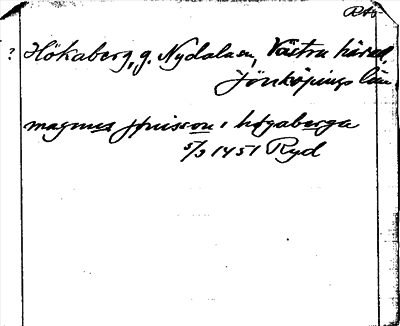 RAp
? Hökaberg, g. Nydala sn, Västra härad,
Jönköpings län
magnus jønisson i høgaberga
5/3 1451 Ryd